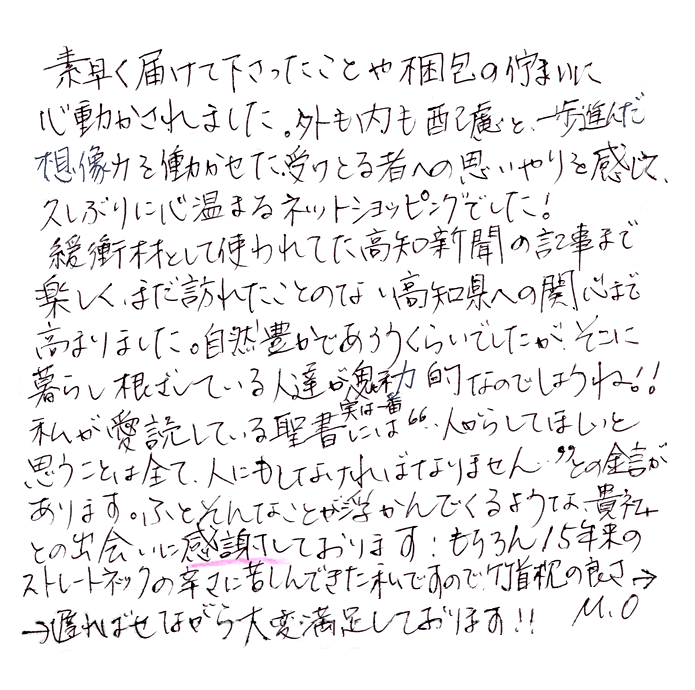 素早く届けて下さったことや梱包の佇まいに
心動かされました。外も内も配慮と、一歩進んだ
想像力を働かせた、受けとる者への思いやりを感じて、
久しぶりに心温まるネットショッピングでした!
緩衝材として使われてた高知新聞の記事まで
楽しく、まだ訪れたことのない高知県への関心まで
高まりました。自然豊かであろうくらいでしたが、そこに
暮らし根ざしている人達が魅力的なのでしょうね!!
実は一番
私が愛読している聖書には“人からしてほしいと
思うことは全て、人にもしなければなりません”との金言が
あります。ふとそんなことが浮かんでくるような、貴社
との出会いに感謝しております!もちろん15年来の
ストレートネックの辛さに苦しんできた私ですので、竹首枕の良さ→
→遅ればせながら大変満足しております!! M.O